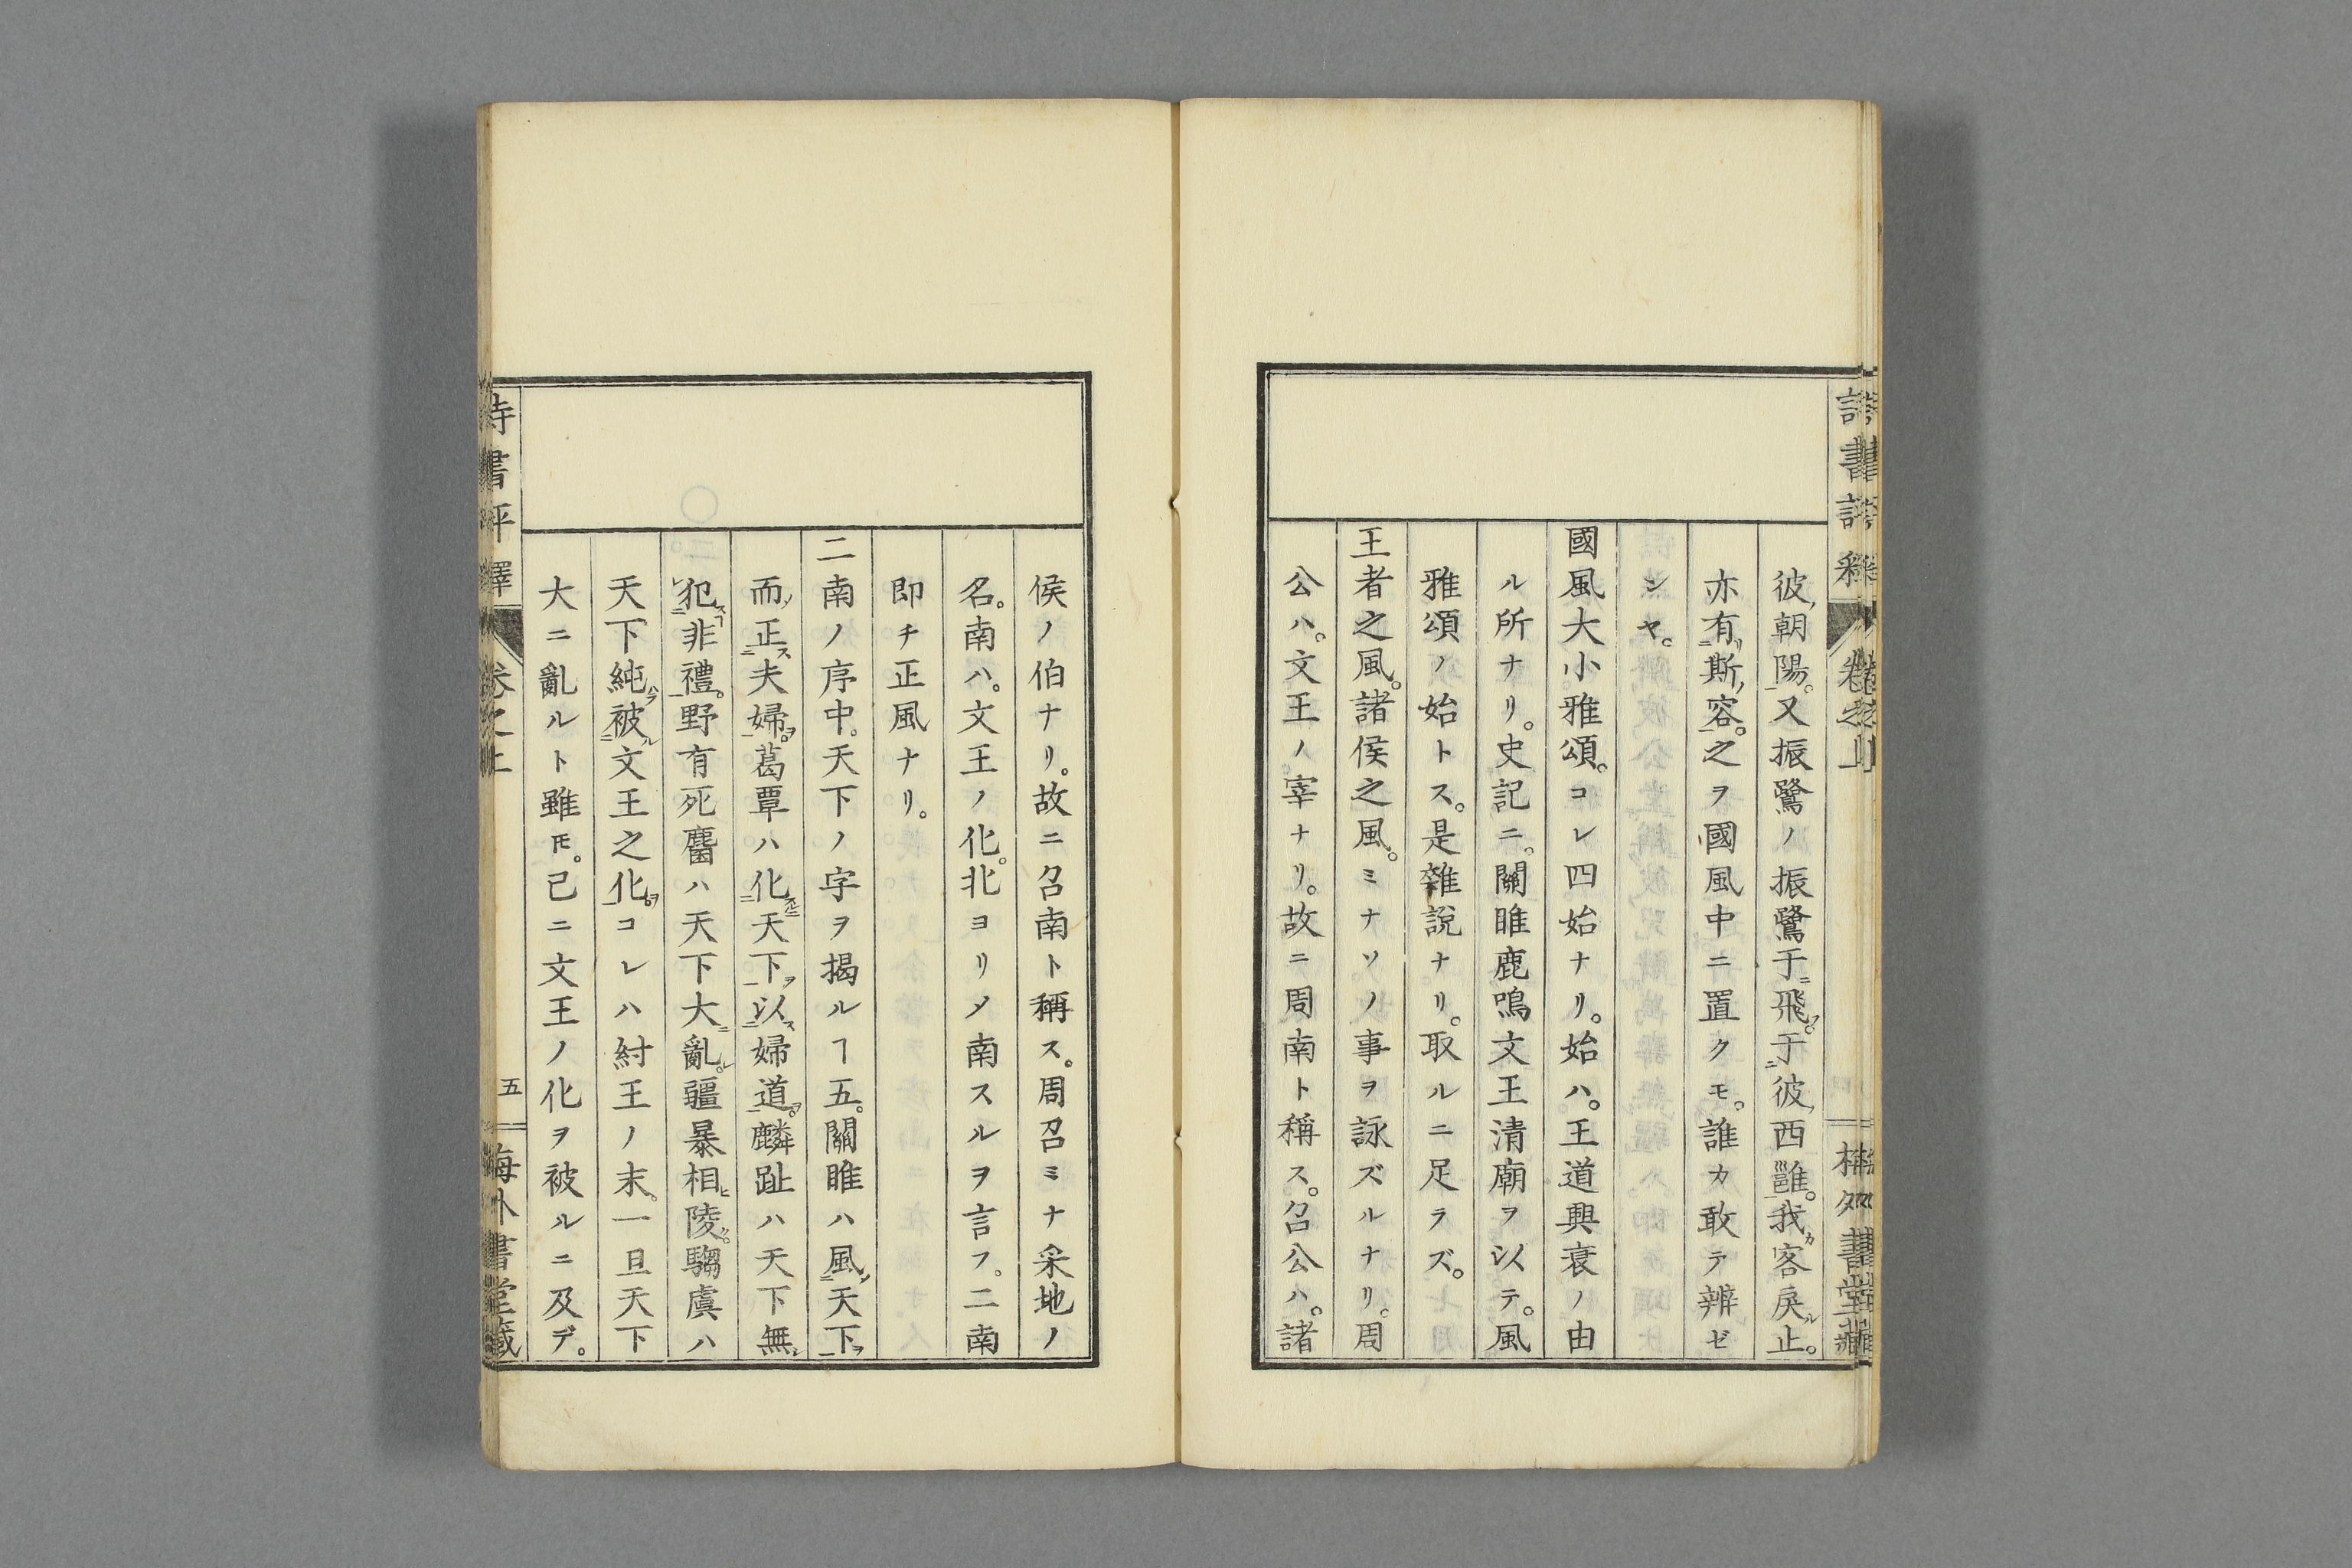 彼朝陽。又振鷺ノ振鷺于飛。于彼西雝。我客戾止。
亦有斯容。之ヲ國風中ニ置クモ。誰カ敢テ辨ゼ
ンヤ。
國風大小雅頌。コレ四始ナリ。始ハ。王道興衰ノ由
ル所ナリ。史記ニ。關雎鹿鳴文王清廟ヲ以テ。風
雅頌ノ始トス。是雜說ナリ。取ルニ足ラズ。
王者之風。諸侯之風。ミナソノ事ヲ詠ズルナリ。周
公ハ。文王ノ宰ナリ。故ニ周南ト稱ス。召公ハ。諸
侯ノ伯ナリ。故ニ召南ト稱ス。周召ミナ采地ノ
名。南ハ。文王ノ化。北ヨリメ南スルヲ言フ。二南
即チ正風ナリ。
二南ノ序中。天下ノ字ヲ揭ルヿ五。關雎ハ風天下
而正夫婦。葛覃ハ化天下以婦道。麟趾ハ天下無
犯非禮。野有死麕ハ天下大亂。疆暴相陵。騶虞ハ
天下純被文王之化。コレハ紂王ノ末。一旦天下
大ニ亂ルト雖𪜈。已ニ文王ノ化ヲ被ルニ及デ。
詩書評釋 卷之上 五 梅外書堂藏